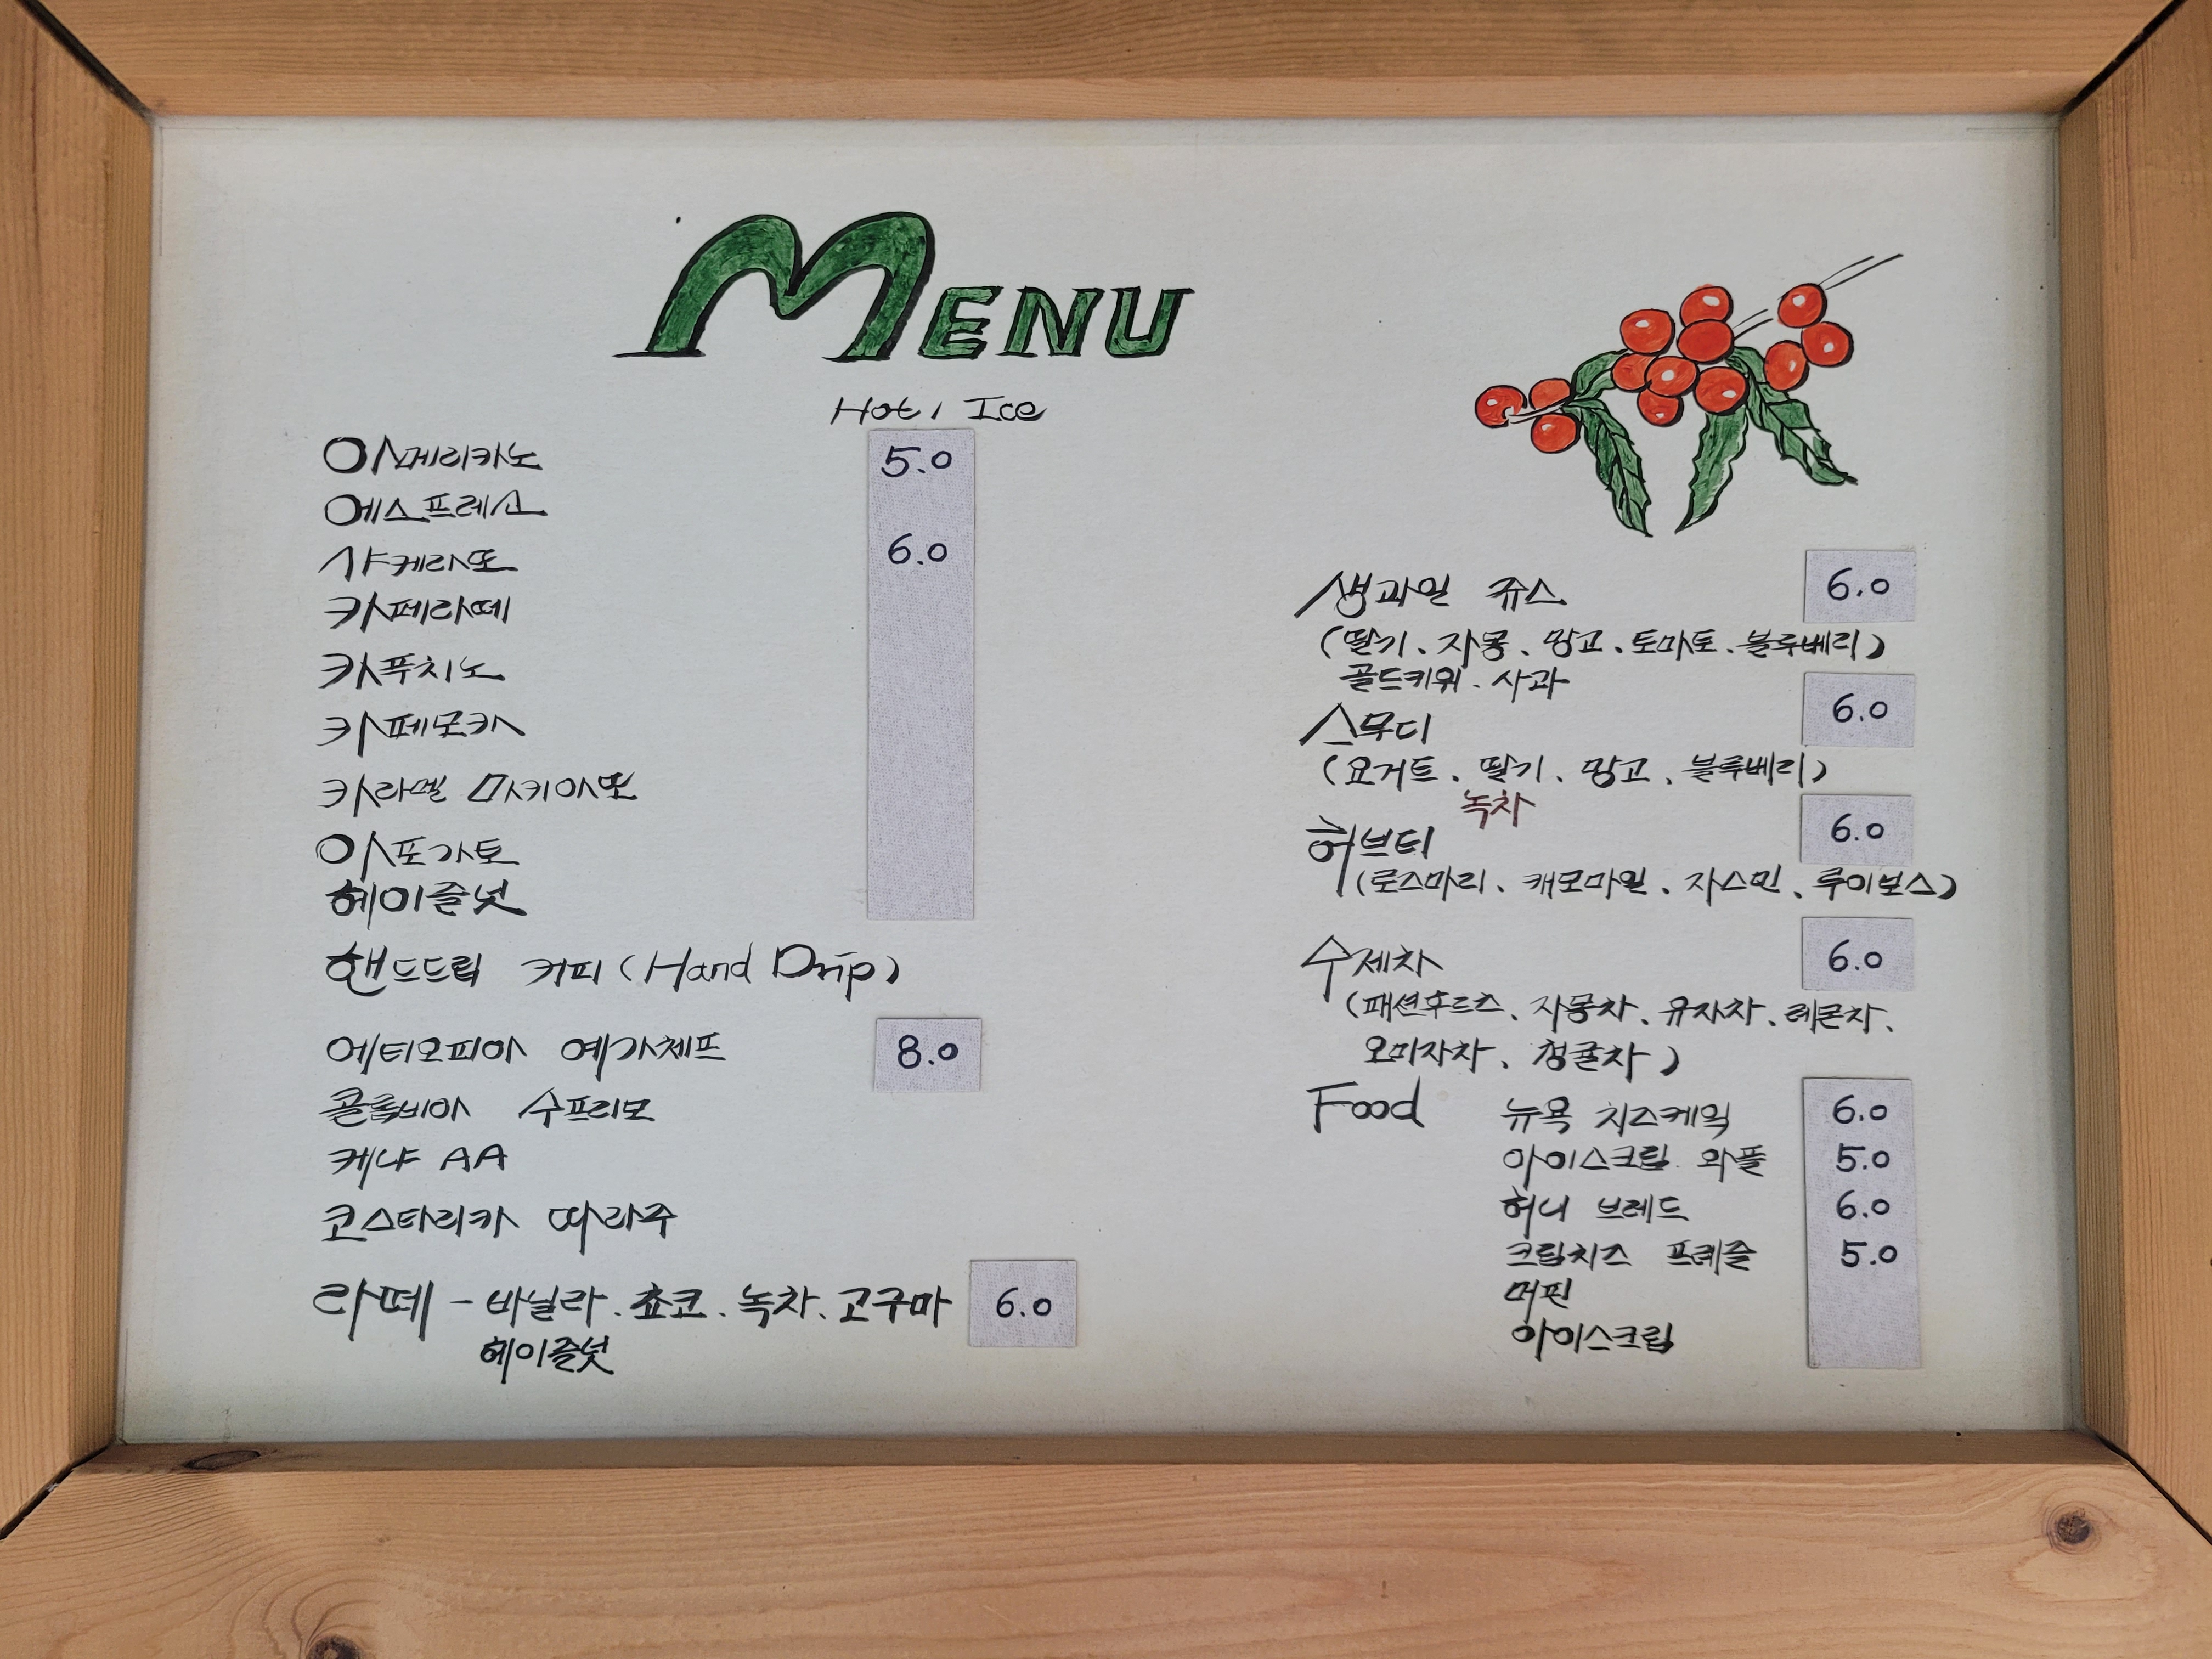 MENU
Hot / Ice
아메리카노 5.0
에스프레소
샤케라또 6.0
카페라떼
카푸치노
카페모카
카라멜 마키아또
아포가토
헤이즐넛
핸드드립 커피 (Hand Drip)
에티오피아 예가체프 8.0
콜롬비아 수프리모
케냐 AA
코스타리카 따라주
라떼 - 바닐라. 쵸코. 녹차. 고구마 6.0
헤이즐넛
생과일 쥬스 6.0
(딸기、자몽、망고、토마토、블루베리)
골드키위. 사과
스무디 6.0
(요거트、딸기、망고、블루베리)
녹차
허브티 6.0
(로스마리、캐모마일、자스민、루이보스)
수제차 6.0
(패션후르츠、자몽차、유자차、레몬차、
오미자차、청귤차)
Food 뉴욕 치즈케잌 6.0
아이스크림 와플 5.0
허니 브레드 6.0
크림치즈 프레즐 5.0
머핀
아이스크림